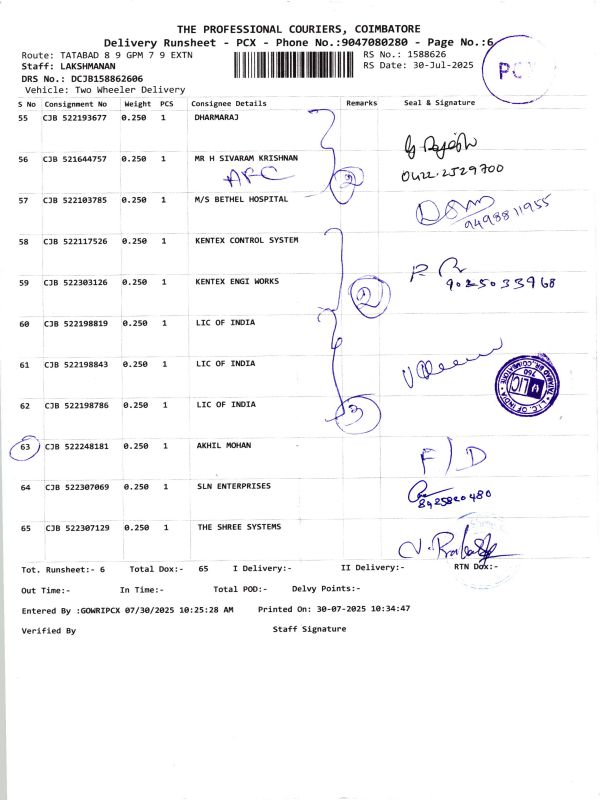 THE PROFESSIONAL COURIERS, COIMBATORE
Delivery Runsheet - PCX - Phone No.:9047080280 - Page No.:6
Route: TATABAD 8 9 GPM 7 9 EXTN RS No.: 1588626
Staff: LAKSHMANAN RS Date: 30-Jul-2025
DRS No.: DCJB158862606
Vehicle: Two Wheeler Delivery
S No Consignment No Weight PCS Consignee Details Remarks Seal & Signature
55 CJB 522193677 0.250 1 DHARMARAJ
56 CJB 521644757 0.250 1 MR H SIVARAM KRISHNAN
AFC 2 0422.2529700
57 CJB 522103785 0.250 1 M/S BETHEL HOSPITAL
9498811955
58 CJB 522117526 0.250 1 KENTEX CONTROL SYSTEM
59 CJB 522303126 0.250 1 KENTEX ENGI WORKS
2 9025033968
60 CJB 522198819 0.250 1 LIC OF INDIA
61 CJB 522198843 0.250 1 LIC OF INDIA
62 CJB 522198786 0.250 1 LIC OF INDIA
3
63 CJB 522248181 0.250 1 AKHIL MOHAN
F/D
64 CJB 522307069 0.250 1 SLN ENTERPRISES
8925820480
65 CJB 522307129 0.250 1 THE SHREE SYSTEMS
Tot. Runsheet:- 6 Total Dox:- 65 I Delivery:- II Delivery:- RTN Dox:-
Out Time:- In Time:- Total POD:- Delvy Points:-
Entered By :GOWRIPCX 07/30/2025 10:25:28 AM Printed On: 30-07-2025 10:34:47
Verified By Staff Signature